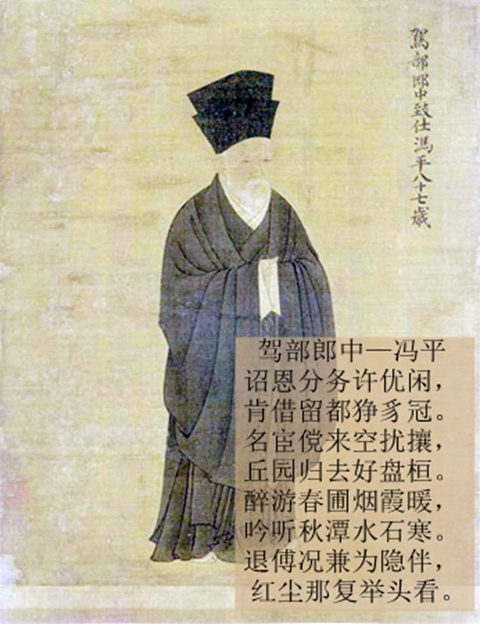 駕部郎中致仕馮平八十七歲
驾部郎中—冯平
诏恩分务许优闲，
肯借留都狰豸冠。
名宦傥来空扰攘，
丘园归去好盘桓。
醉游春圃烟霞暖，
吟听秋潭水石寒。
退傅况兼为隐伴，
红尘那复举头看。